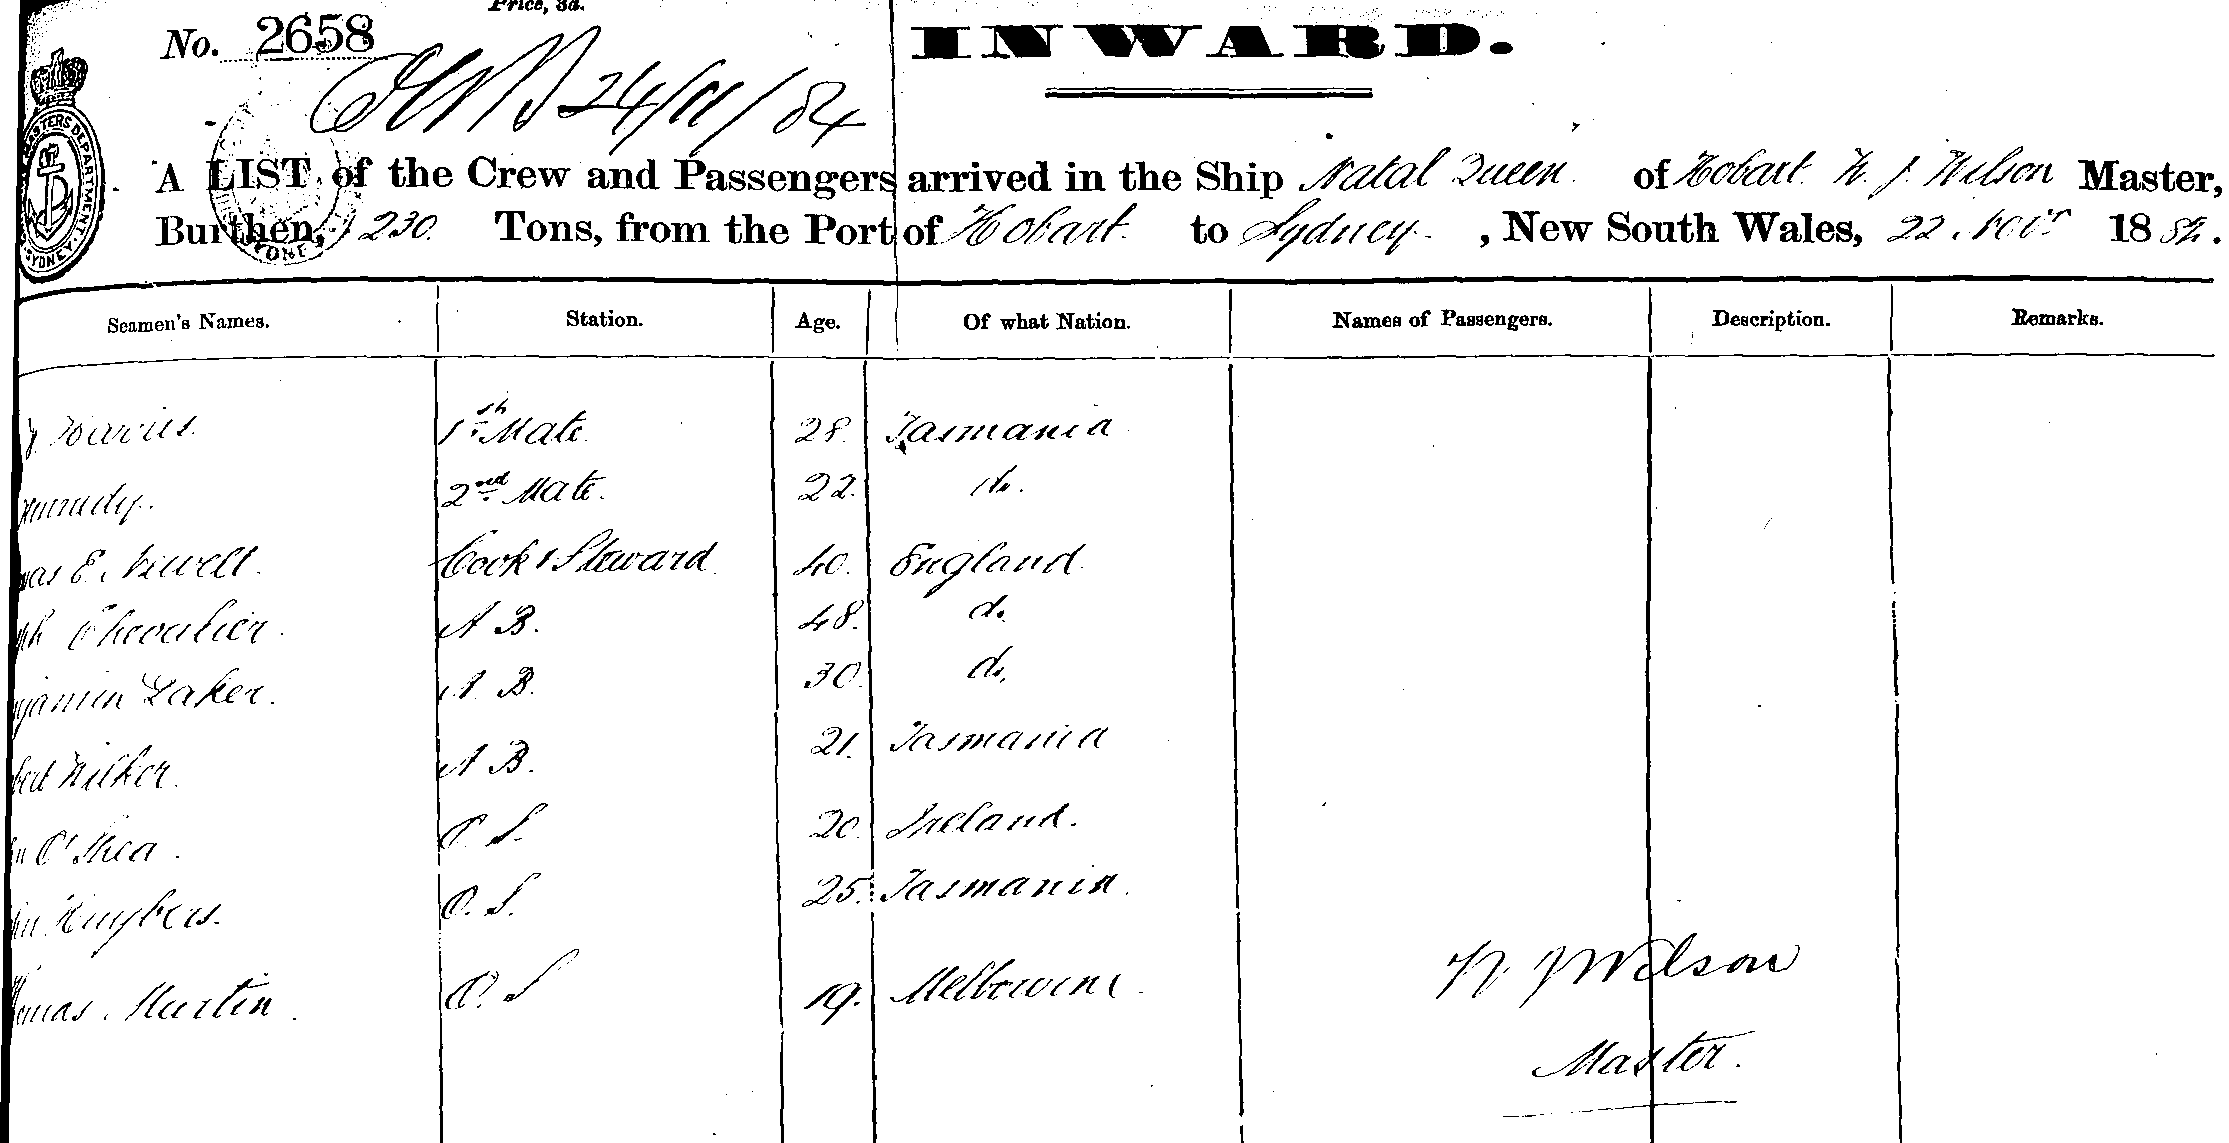 Price, 3d.
No. 2658
INWARD.
24/11/84
A LIST of the Crew and Passengers arrived in the Ship Natal Queen of Hobart. W. J. Wilson Master,
Burthen, 230. Tons, from the Port of Hobart. to Sydney. , New South Wales, 22 Novr 1884.
Seamen's Names. Station. Age. Of what Nation. Names of Passengers. Description. Remarks.
Harris. 1st Mate. 28. Tasmania
2nd Mate. 22. do.
E. Newell. Cook & Steward. 40. England
Chevalier. A B. 48. do.
Laker. A B. 30. do.
A B. 21. Tasmania
O'Shea. O. S. 20. Ireland.
Huybers. O. S. 25. Tasmania.
Martin. O. S 19. Melbourne
W. J Wilson
Master.